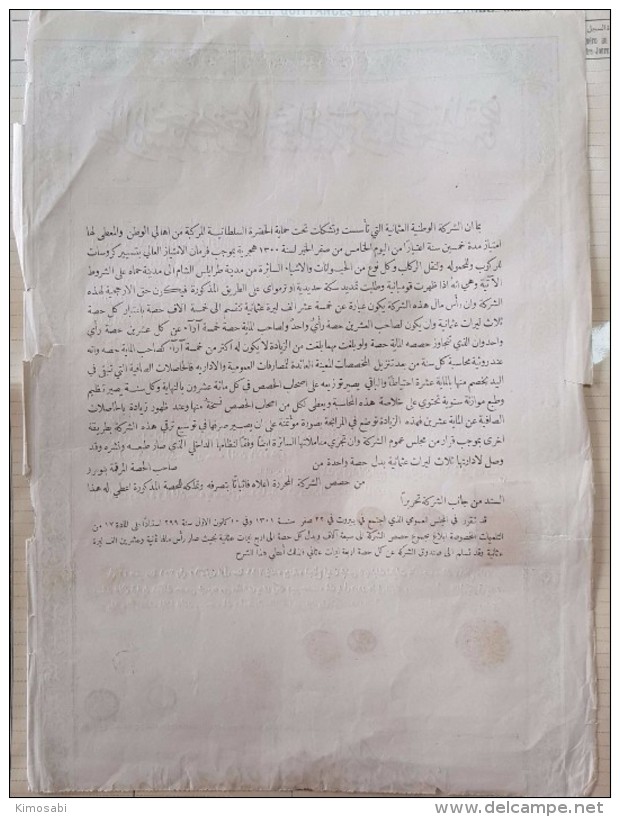 بما ان الشركة الوطنية العثمانية التي تأسست وتشكلت تحت حماية الحضرة السلطانية المركبة من اهالي الوطن والمعطى لها
امتياز مدة خمسين سنة اعتبارًا من اليوم الخامس من صفر الخير لسنة ١٣٠٠ هجرية بموجب فرمان الامتياز العالي بتسيير كروسات
للركوب والحمولة ولنقل الركاب وكل نوع من الحيوانات والاشياء السائرة من مدينة طرابلس الشام الى مدينة حماه على الشروط
الآتية وهي انه اذا ظهرت قومبانية وطلبت تمديد سكة حديدية او ترمواي على الطريق المذكورة فيكون حق الارجحية لهذه
الشركة وان رأس مال هذه الشركة يكون عبارة عن خمسة عشر الف ليرة عثمانية تقسم الى خمسة الاف حصة باعتبار كل حصة
ثلاث ليرات عثمانية وان يكون لصاحب العشرين حصة رأي واحد ولصاحب المائة حصة خمسة آراء عن كل عشرين حصة رأي
واحد وان الذي تتجاوز حصصه المائة حصة ولو بلغت مهما بلغت من الزيادة لا يكون له أكثر من خمسة آراء كصاحب المائة حصة وانه
عند رؤية محاسبة كل سنة من بعد تنزيل المخصصات المعينة العائدة للمصارفات العمومية والادارية فالحاصلات الصافية التي تبقى في
اليد يخصم منها بالماية عشرة احتياطًا والباقي يصير توزيعه على اصحاب الحصص في كل مائة عشرون بالنهاية وكل سنة يصير تنظيم
وطبع موازنة سنوية تحتوي على خلاصة هذه المحاسبة ويعطى لكل من اصحاب الحصص نسخة منها وعند ظهور زيادة بالحاصلات
الصافية عن الماية عشرين فهذه الزيادة توضع في المرابحة بصورة مؤتمنة على ان يصير صرفها في توسيع ترقي هذه الشركة بطريقة
اخرى بموجب قرار من مجلس عموم الشركة وان تجري معاملاتها السائرة ايضًا وفقًا لنظامها الداخلي الذي صار طبعه ونشره وقد
وصل لادارتها ثلاث ليرات عثمانية بدل حصة واحدة من صاحب الحصة المرقمة بنومرو
من حصص الشركة المحررة اعلاه فاثباتًا بتصرفه وتملكه للحصة المذكورة اعطي له هذا
السند من جانب الشركة تحريرًا
قد تقرر في المجلس العمومي الذي اجتمع في بيروت في ٢٢ صفر سنة ١٣٠١ وفي ١٠ كانون الاول سنة ٢٩٩ استنادًا الى المادة ١٧ من
النظامات المخصوصة ابلاغ مجموع حصص الشركة الى سبعة آلاف وبدل كل حصة الى اربع ليرات عثمانية بحيث صار رأس مالها ثمانية وعشرين الف ليرة
عثمانية وقد تسلم الى صندوق الشركة عن كل حصة اربعة ليرات عثماني فلذلك أعطي هذا الشرح
Kimosabi
delcampe.net